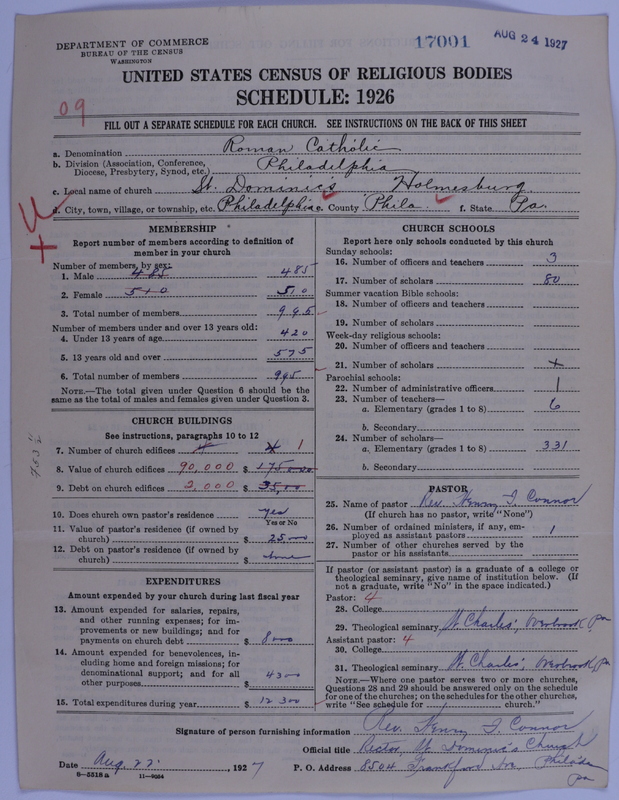 DEPARTMENT OF COMMERCE
BUREAU OF THE CENSUS
WASHINGTON
17001
AUG 24 1927
UNITED STATES CENSUS OF RELIGIOUS BODIES
SCHEDULE: 1926
09
FILL OUT A SEPARATE SCHEDULE FOR EACH CHURCH. SEE INSTRUCTIONS ON THE BACK OF THIS SHEET
a. Denomination Roman Catholic
b. Division (Association, Conference, Diocese, Presbytery, Synod, etc.) Philadelphia
c. Local name of church St. Dominic's Holmesburg
d. City, town, village, or township, etc. Philadelphia e. County Phila. f. State Pa.
MEMBERSHIP
Report number of members according to definition of
member in your church
Number of members, by sex:
1. Male 485 485
2. Female 510 510
3. Total number of members 995
Number of members under and over 13 years old:
4. Under 13 years of age 420
5. 13 years old and over 575
6. Total number of members 995
NOTE.—The total given under Question 6 should be the
same as the total of males and females given under Question 3.
CHURCH BUILDINGS
See instructions, paragraphs 10 to 12
7. Number of church edifices 1
8. Value of church edifices 90,000 $ 175,000
9. Debt on church edifices 2,000 $ 35,000
10. Does church own pastor's residence yes
Yes or No
11. Value of pastor's residence (if owned by
church) $ 25000
12. Debt on pastor's residence (if owned by
church) $ none
EXPENDITURES
Amount expended by your church during last fiscal year
13. Amount expended for salaries, repairs,
and other running expenses; for im-
provements or new buildings; and for
payments on church debt $ 8000
14. Amount expended for benevolences, in-
cluding home and foreign missions; for
denominational support; and for all
other purposes $ 4300
15. Total expenditures during year $ 12300
CHURCH SCHOOLS
Report here only schools conducted by this church
Sunday schools:
16. Number of officers and teachers 3
17. Number of scholars 80
Summer vacation Bible schools:
18. Number of officers and teachers
19. Number of scholars
Week-day religious schools:
20. Number of officers and teachers
21. Number of scholars +
Parochial schools:
22. Number of administrative officers 1
23. Number of teachers—
a. Elementary (grades 1 to 8) 6
b. Secondary
24. Number of scholars—
a. Elementary (grades 1 to 8) 331
b. Secondary
PASTOR
25. Name of pastor Rev. Henry I. Connor
(If church has no pastor, write "None")
26. Number of ordained ministers, if any, em-
ployed as assistant pastors 1
27. Number of other churches served by the
pastor or his assistants
If pastor (or assistant pastor) is a graduate of a college or
theological seminary, give name of institution below. (If
not a graduate, write "No" in the space indicated.)
Pastor: 4
28. College
29. Theological seminary St. Charles', Overbrook, Pa
Assistant pastor: 4
30. College
31. Theological seminary St. Charles' Overbrook, Pa
NOTE.—Where one pastor serves two or more churches,
Questions 28 and 29 should be answered only on the schedule
for one of the churches; on the schedules for the other churches,
write "See schedule for church."
Signature of person furnishing information Rev. Henry I. Connor
Official title Rector, St Dominic's Church
Date Aug. 22. 1927 P. O. Address 8504 Frankford Ave, Philada
Pa
8-5518a 11-9054